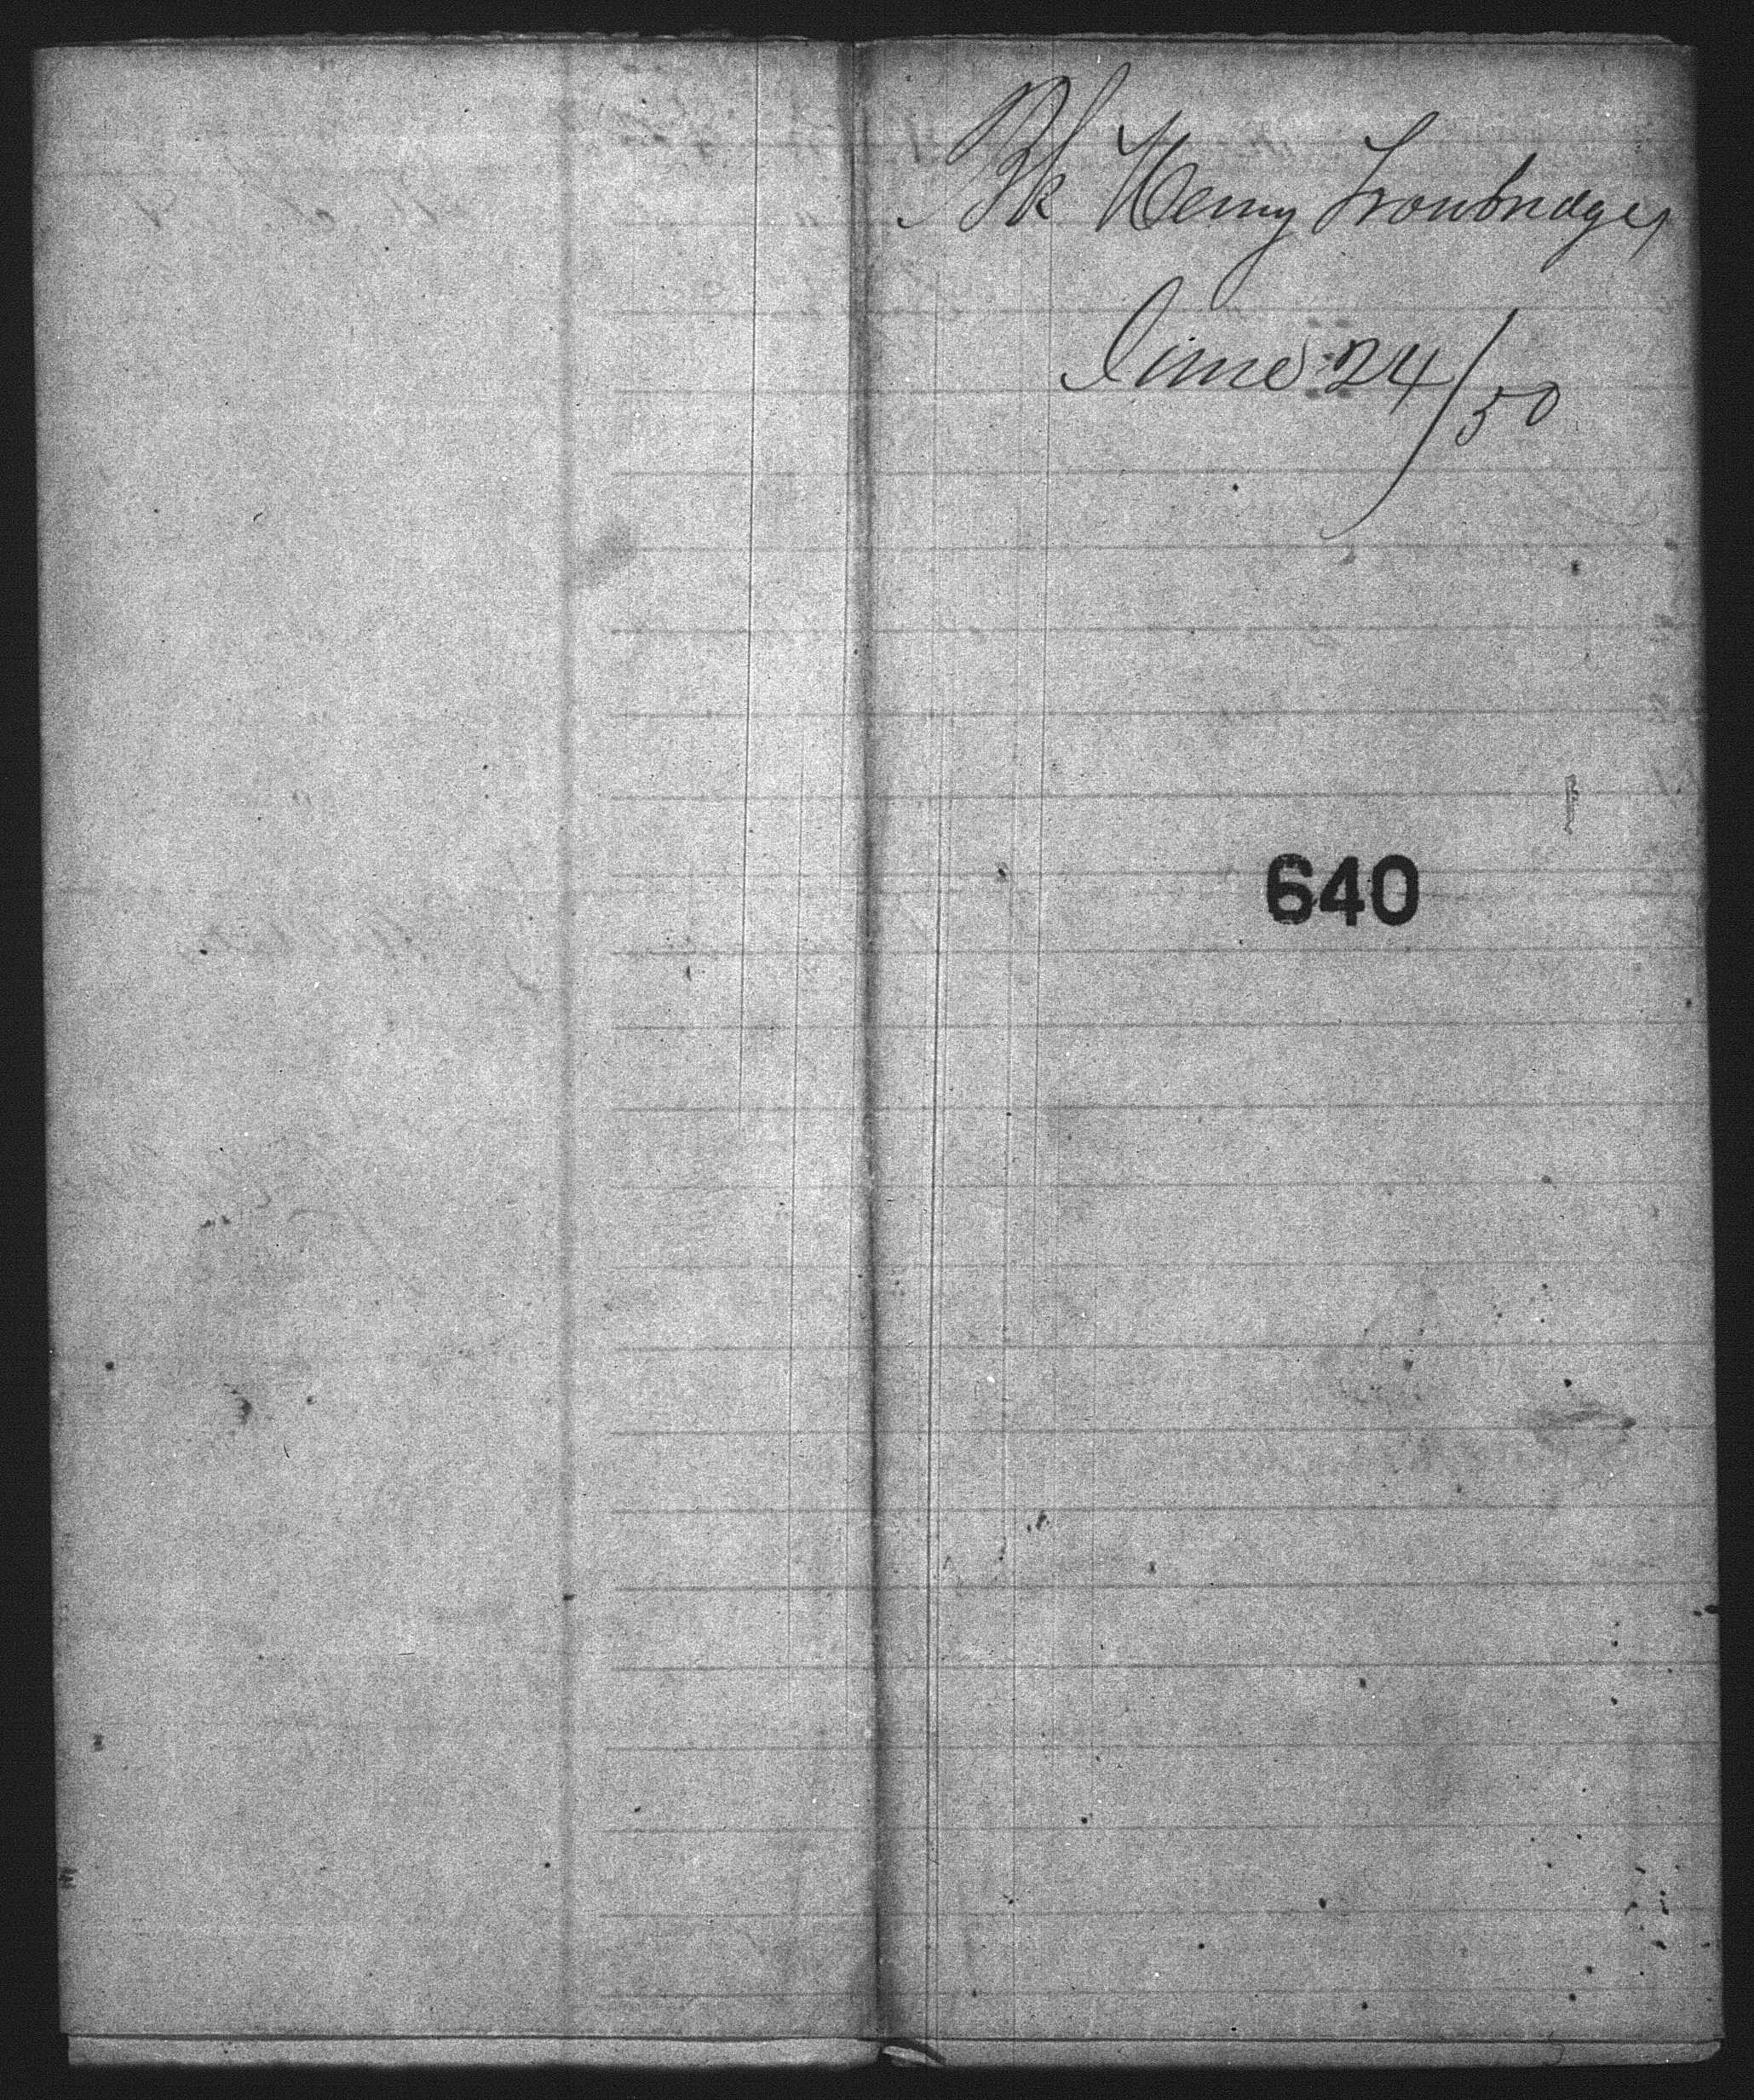 Bk Henry Trowbridge,
June 24/50
640